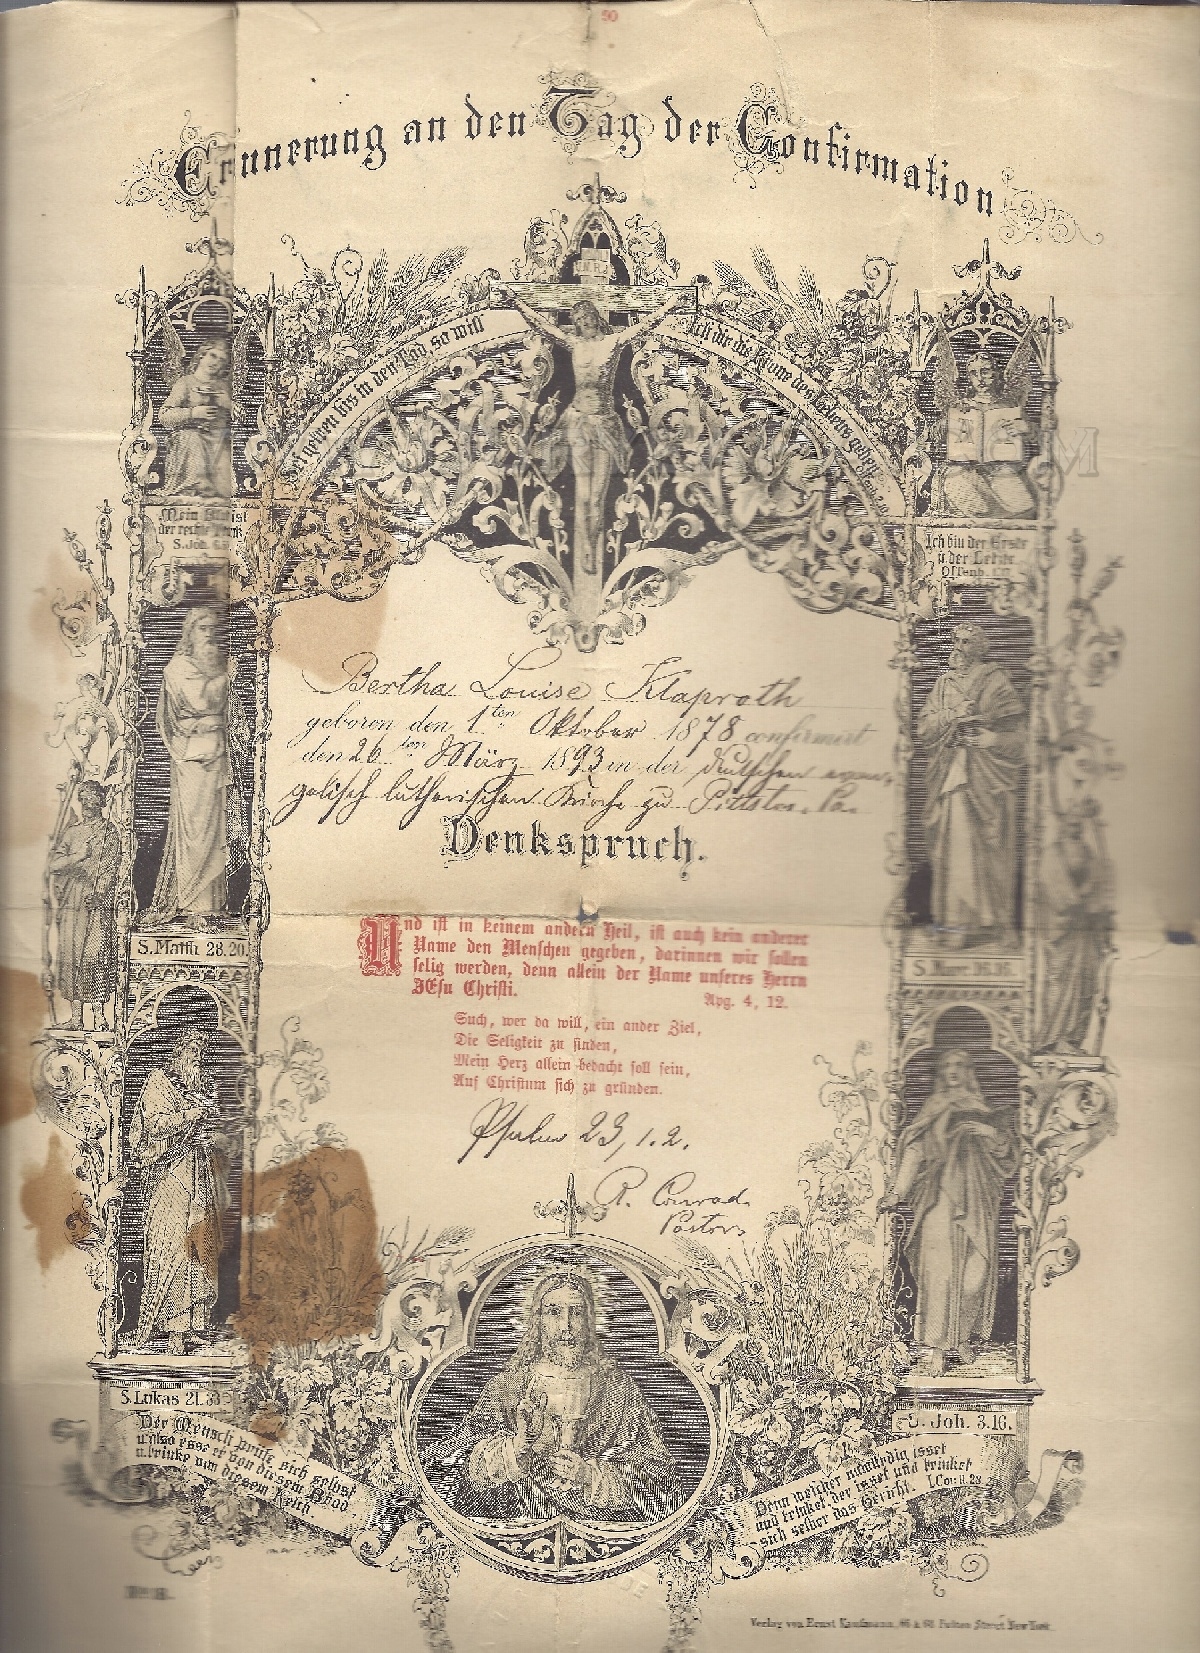 90
Erinnerung an den Tag der Confirmation
I.N.R.I.
Sei getreu bis in den Tod, so will
ich dir die Krone des Lebens geben.
Offenb. 2,10
Mein Blut ist
der rechte Trank
S. Joh. 6.
Ich bin der Erste
u. der Letzte.
Offenb. 1.17
A
Bertha Louise Klaproth
geboren den 1ten Oktober 1878 confirmirt
den 26ten März 1893 in der deutschen evan-
gelisch lutherischen Kirche zu Pittston. Pa.
Denkspruch.
Und ist in keinem andern Heil, ist auch kein anderer
Name den Menschen gegeben, darinnen wir sollen
selig werden, denn allein der Name unseres Herrn
JEsu Christi.
Apg. 4, 12.
Such, wer da will, ein ander Ziel,
Die Seligkeit zu finden,
Mein Herz allein bedacht soll sein,
Auf Christum sich zu gründen.
Psalm 23, 1.2.
R. Conrad
Pastor
S. Matth. 28.20.
S. Marc. 16.16.
S. Lukas 21.33
S. Joh. 3.16.
Der Mensch prüfe sich selbst
u. also esse er von diesem Brod
u. trinke von diesem Kelch.
Denn welcher unwürdig isset
und trinket der isset und trinket
sich selber das Gericht. I. Cor. 11. 29.
No. 18.
Verlag von Ernst Kaufmann, 66 & 68 Fulton Street New York.